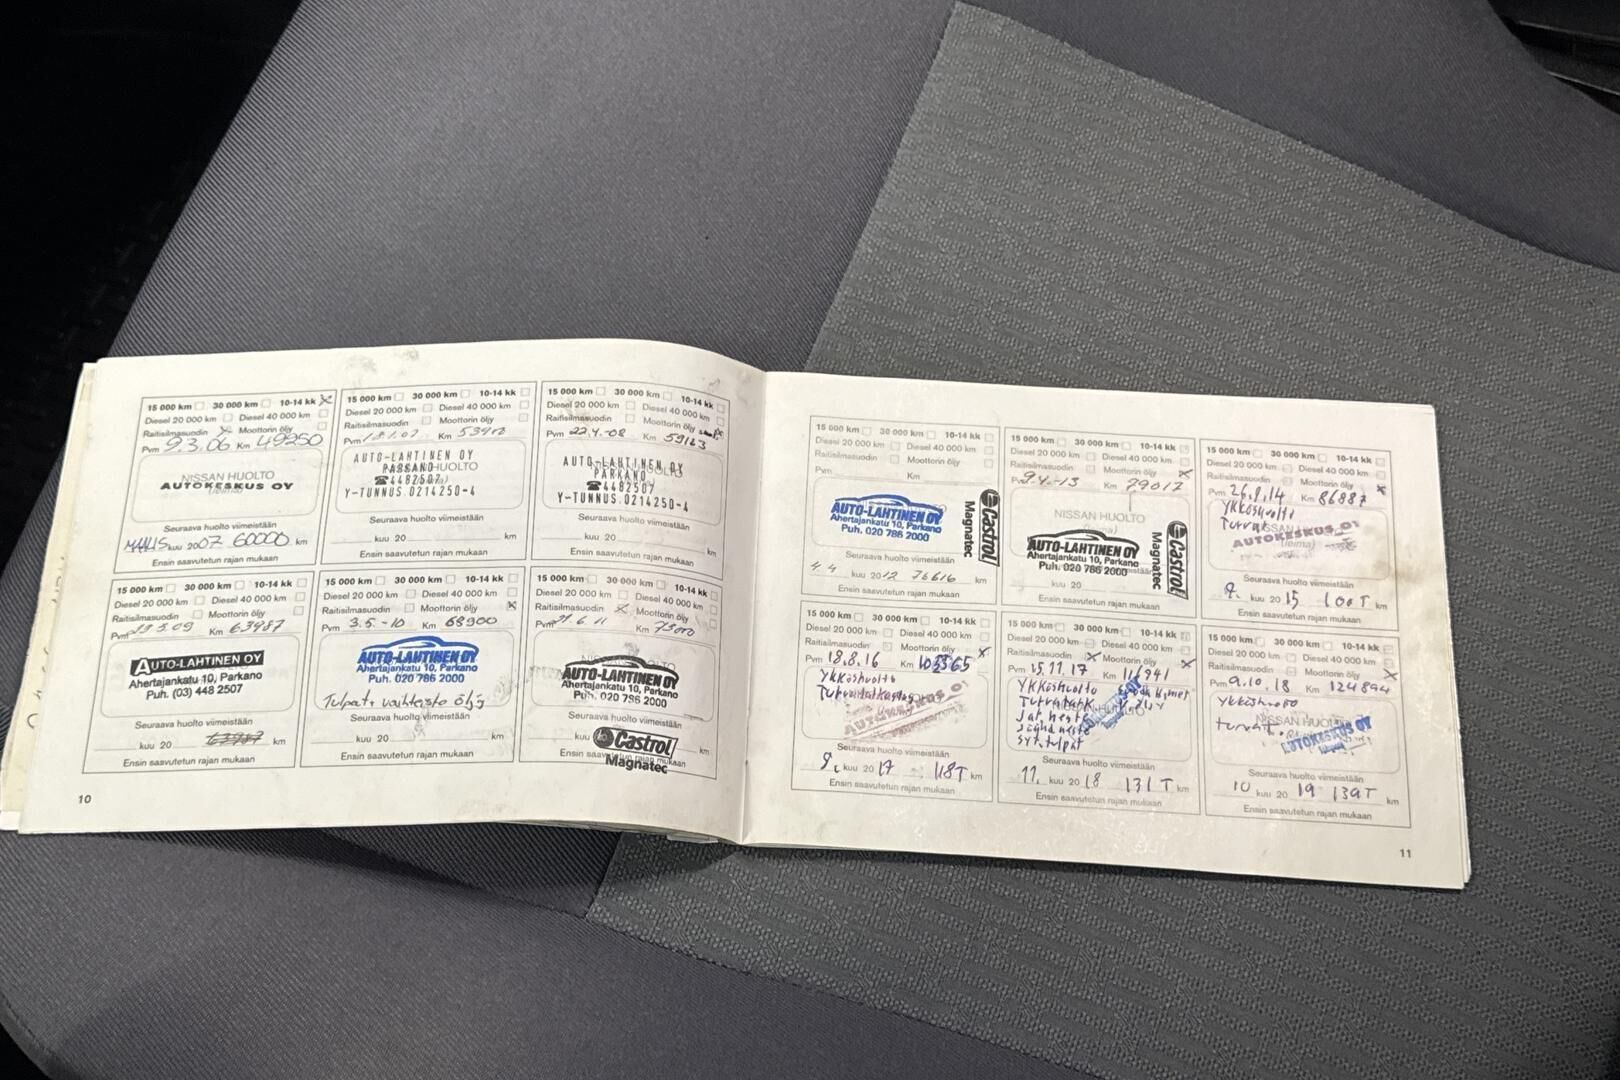 15 000 km 30 000 km 10-14 kk
Diesel 20 000 km Diesel 40 000 km
Raitisilmasuodin Moottorin öljy
Pvm 9.3.06 Km 49250
NISSAN HUOLTO
AUTOKESKUS OY
(leima)
Seuraava huolto viimeistään
MAALIS kuu 2007 60000 km
Ensin saavutetun rajan mukaan
15 000 km 30 000 km 10-14 kk
Diesel 20 000 km Diesel 40 000 km
Raitisilmasuodin Moottorin öljy
Pvm Km
AUTO-LAHTINEN OY
HUOLTO
☎4482507
Y-TUNNUS.0214250-4
Seuraava huolto viimeistään
kuu 20 km
Ensin saavutetun rajan mukaan
15 000 km 30 000 km 10-14 kk
Diesel 20 000 km Diesel 40 000 km
Raitisilmasuodin Moottorin öljy
Pvm 22.4.-08 Km 59163
AUTO-LAHTINEN OY
PARKANO
☎4482507
Y-TUNNUS.0214250-4
Seuraava huolto viimeistään
kuu 20 km
Ensin saavutetun rajan mukaan
15 000 km 30 000 km 10-14 kk
Diesel 20 000 km Diesel 40 000 km
Raitisilmasuodin Moottorin öljy
Pvm Km 63987
AUTO-LAHTINEN OY
Ahertajankatu 10, Parkano
Puh. (03) 448 2507
Seuraava huolto viimeistään
kuu 20 63987 km
Ensin saavutetun rajan mukaan
15 000 km 30 000 km 10-14 kk
Diesel 20 000 km Diesel 40 000 km
Raitisilmasuodin Moottorin öljy
Pvm 3.5.-10 Km 68900
AUTO-LAHTINEN OY
Ahertajankatu 10, Parkano
Puh. 020 786 2000
Tulpat, vaihteisto öljy
Seuraava huolto viimeistään
kuu 20 km
Ensin saavutetun rajan mukaan
15 000 km 30 000 km 10-14 kk
Diesel 20 000 km Diesel 40 000 km
Raitisilmasuodin Moottorin öljy
Pvm Km
NISSAN HUOLTO
AUTO-LAHTINEN OY
Ahertajankatu 10, Parkano
Puh. 020 786 2000
Seuraava huolto viimeistään
kuu Castrol km
Ensin saavutetun rajan mukaan
Magnatec
10
15 000 km 30 000 km 10-14 kk
Diesel 20 000 km Diesel 40 000 km
Raitisilmasuodin Moottorin öljy
Pvm Km
AUTO-LAHTINEN OY
Ahertajankatu 10, Parkano
Puh. 020 786 2000
Castrol
Magnatec
Seuraava huolto viimeistään
4.4 kuu 2012 76616 km
Ensin saavutetun rajan mukaan
15 000 km 30 000 km 10-14 kk
Diesel 20 000 km Diesel 40 000 km
Raitisilmasuodin Moottorin öljy
Pvm 9.4.-13 Km 79017
NISSAN HUOLTO
(leima)
AUTO-LAHTINEN OY
Ahertajankatu 10, Parkano
Puh. 020 786 2000
Castrol
Magnatec
kuu 20
Ensin saavutetun rajan mukaan
15 000 km 30 000 km 10-14 kk
Diesel 20 000 km Diesel 40 000 km
Raitisilmasuodin Moottorin öljy
Pvm 26.9.14 Km 86887
Ykköshuolto
AUTOKESKUS OY
(leima)
Seuraava huolto viimeistään
9. kuu 2015 100T km
Ensin saavutetun rajan mukaan
15 000 km 30 000 km 10-14 kk
Diesel 20 000 km Diesel 40 000 km
Raitisilmasuodin Moottorin öljy
Pvm 18.8.16 Km 103365
Ykköshuolto
Turvatarkastus
Seuraava huolto viimeistään
8. kuu 2017 118T km
Ensin saavutetun rajan mukaan
15 000 km 30 000 km 10-14 kk
Diesel 20 000 km Diesel 40 000 km
Raitisilmasuodin Moottorin öljy
Pvm 15.11.17 Km 116941
Ykköshuolto
Turvatark
Jar.neste
Jäähd.neste
Syt.tulpat
Seuraava huolto viimeistään
11. kuu 2018 131T km
Ensin saavutetun rajan mukaan
15 000 km 30 000 km 10-14 kk
Diesel 20 000 km Diesel 40 000 km
Raitisilmasuodin Moottorin öljy
Pvm 9.10.18 Km 124894
Ykköshuolto
NISSAN HUOLTO
AUTOKESKUS OY
Seuraava huolto viimeistään
10 kuu 2019 139T km
Ensin saavutetun rajan mukaan
11